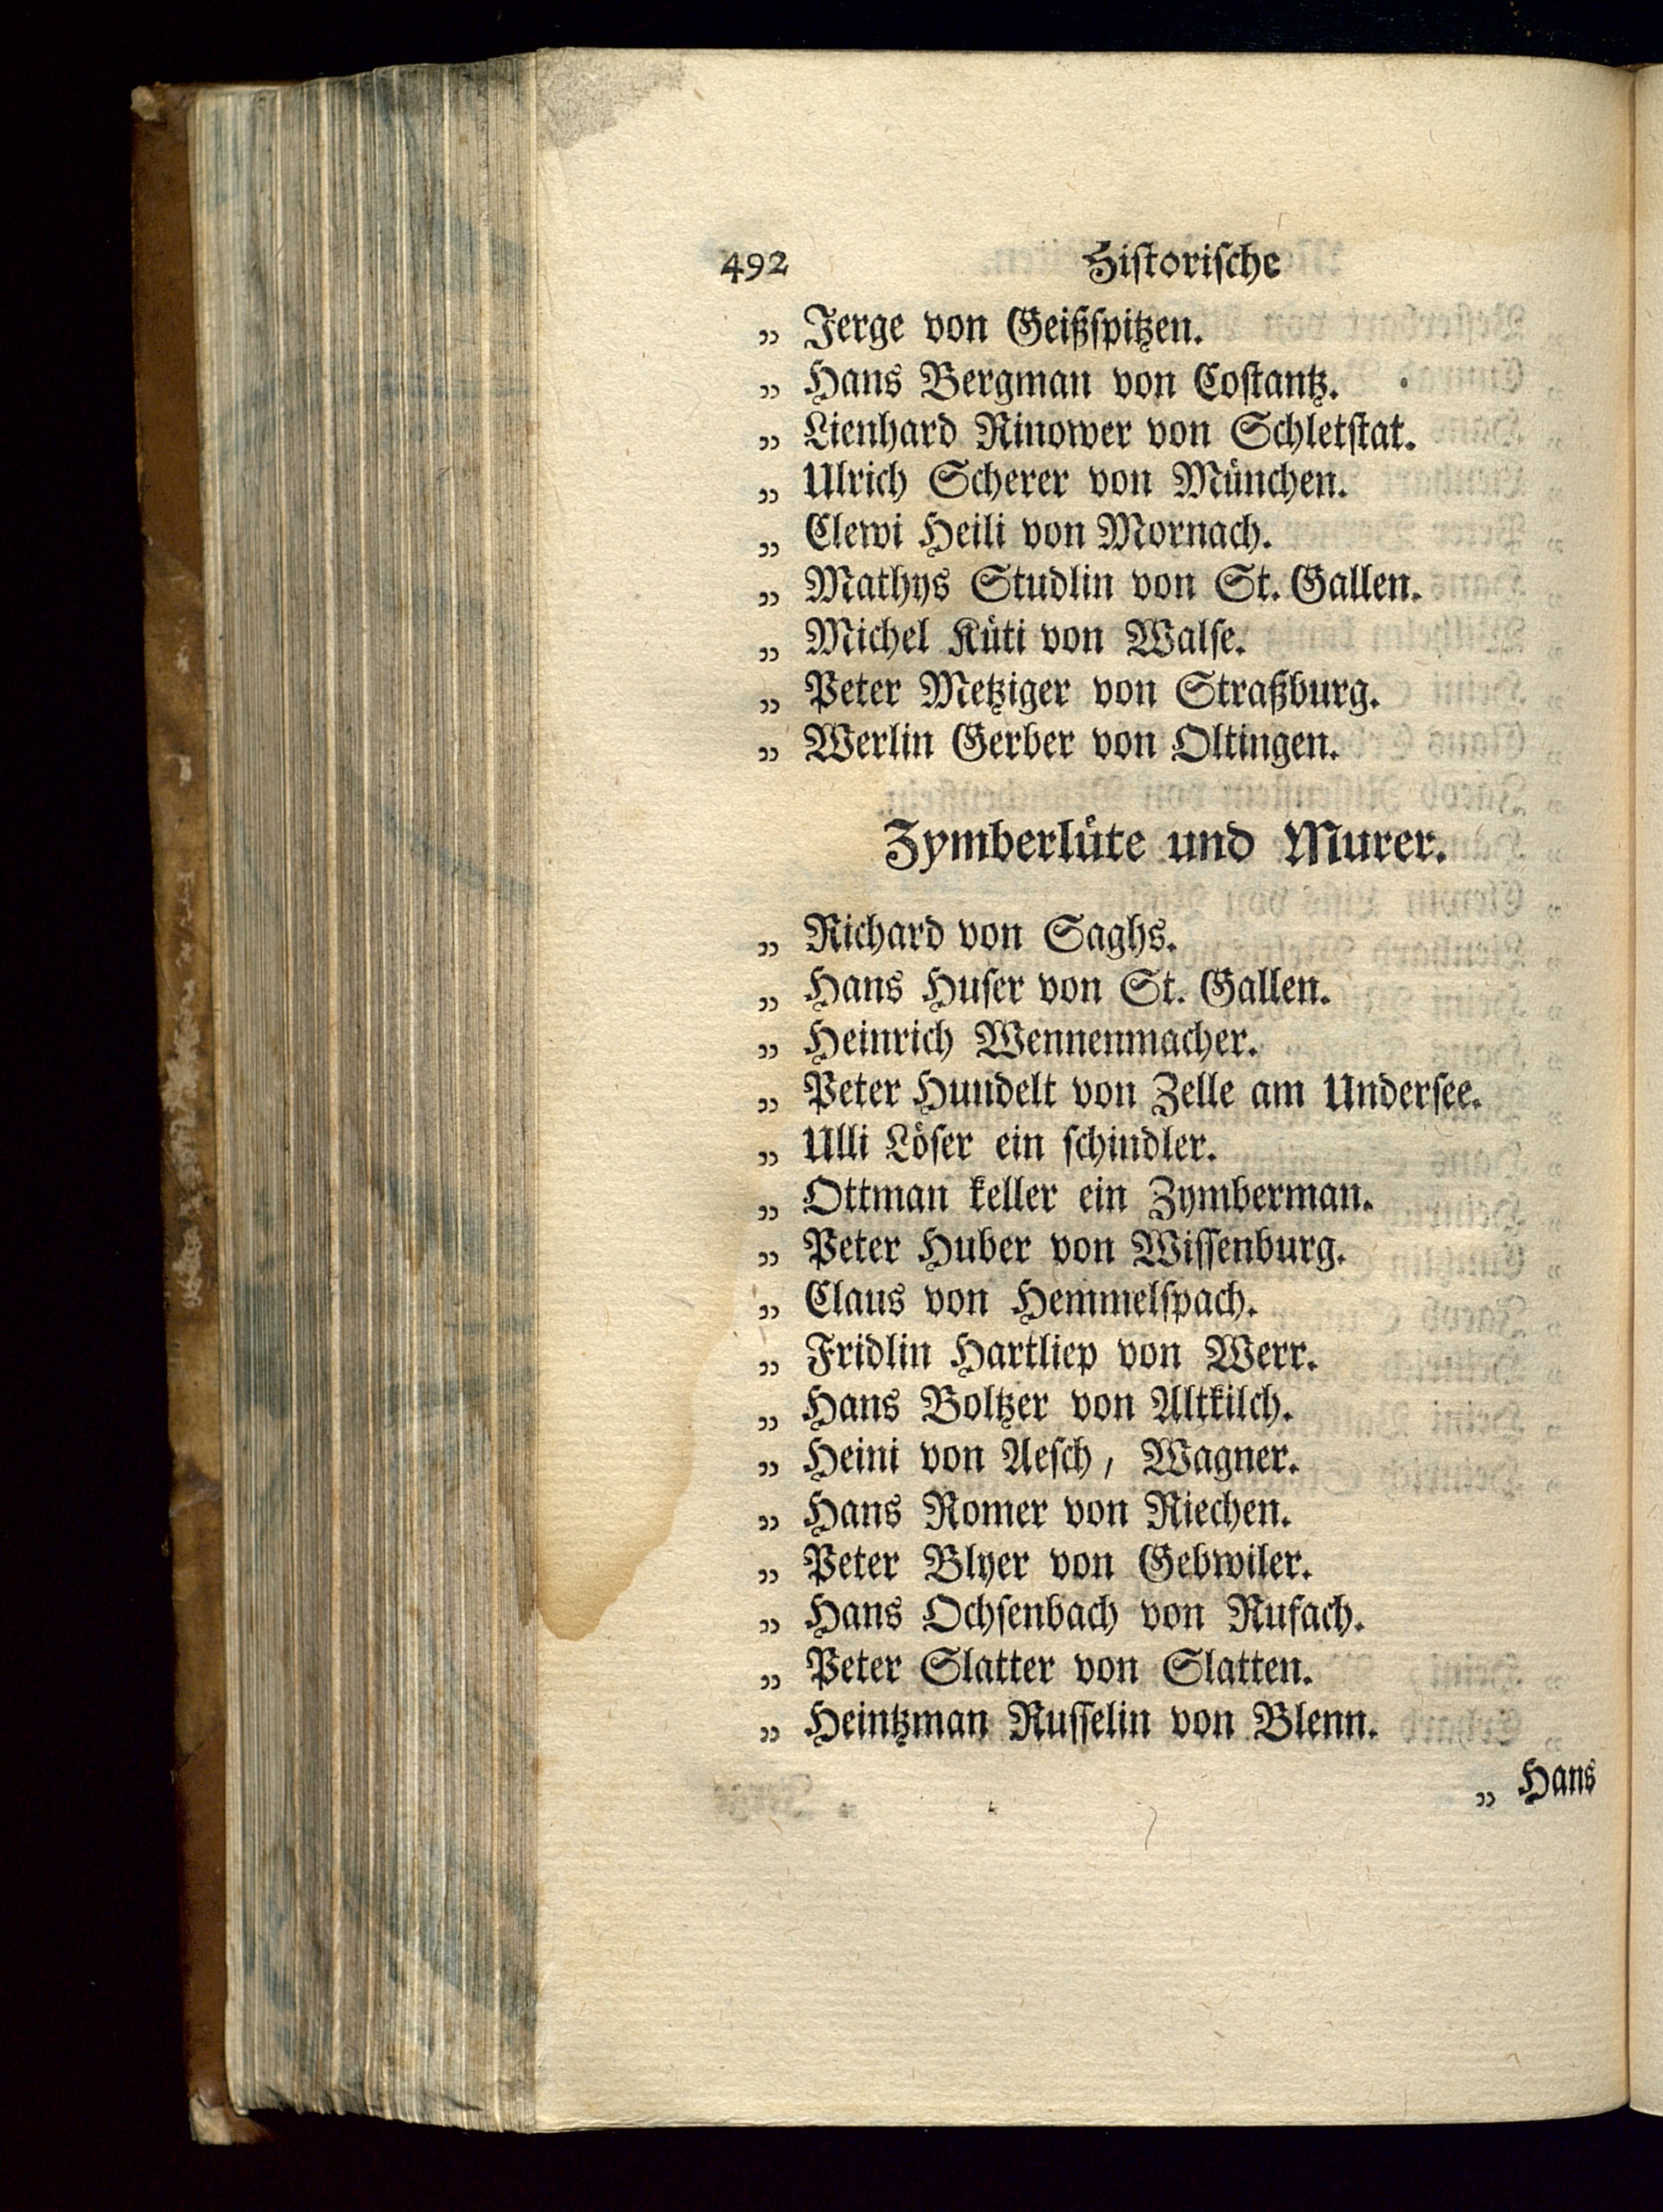 492 Historische
„ Jerge von Geißspitzen.
„ Hans Bergman von Costantz.
„ Lienhard Rinower von Schletstat.
„ Ulrich Scherer von München.
„ Clewi Heili von Mornach.
„ Mathys Studlin von St. Gallen.
„ Michel Küti von Walse.
„ Peter Metziger von Straßburg.
„ Werlin Gerber von Oltingen.
Zymberlüte und Murer.
„ Richard von Saghs.
„ Hans Huser von St. Gallen.
„ Heinrich Wennenmacher.
„ Peter Hundelt von Zelle am Undersee.
„ Ulli Löser ein schindler.
„ Ottman keller ein Zymberman.
„ Peter Huber von Wissenburg.
„ Claus von Hemmelspach.
„ Fridlin Hartliep von Werr.
„ Hans Boltzer von Altkilch.
„ Heini von Aesch, Wagner.
„ Hans Romer von Riechen.
„ Peter Blyer von Gebwiler.
„ Hans Ochsenbach von Rufach.
„ Peter Slatter von Slatten.
„ Heintzman Russelin von Blenn.
„ Hans